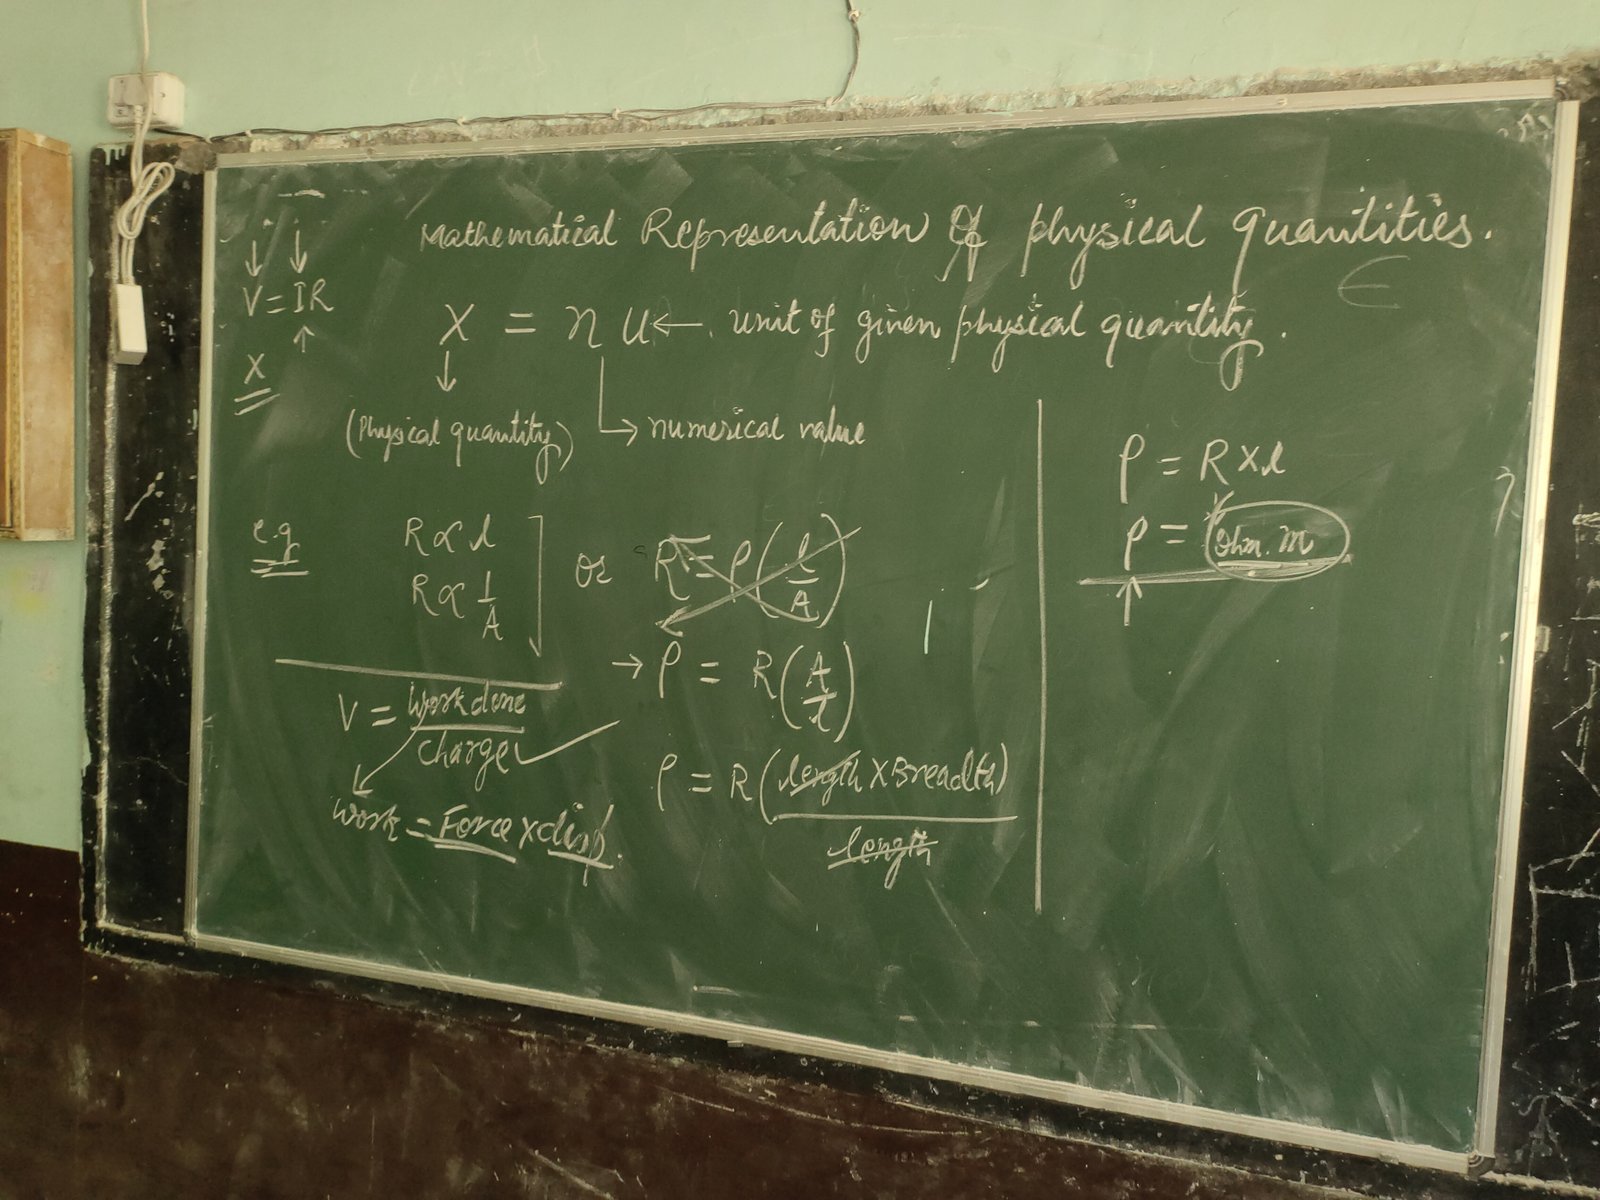 Mathematical Representation Of physical quantities.
V = IR
X
X = n u ← unit of given physical quantity.
(Physical quantity)
numerical value
e.g
R ∝ l
R ∝ 1/A
or
R = ρ(l/A)
→ ρ = R(A/l)
ρ = R(length × Breadth)/length
V = Work done/charge
Work = Force × disp.
ρ = R × l
ρ = ohm. m